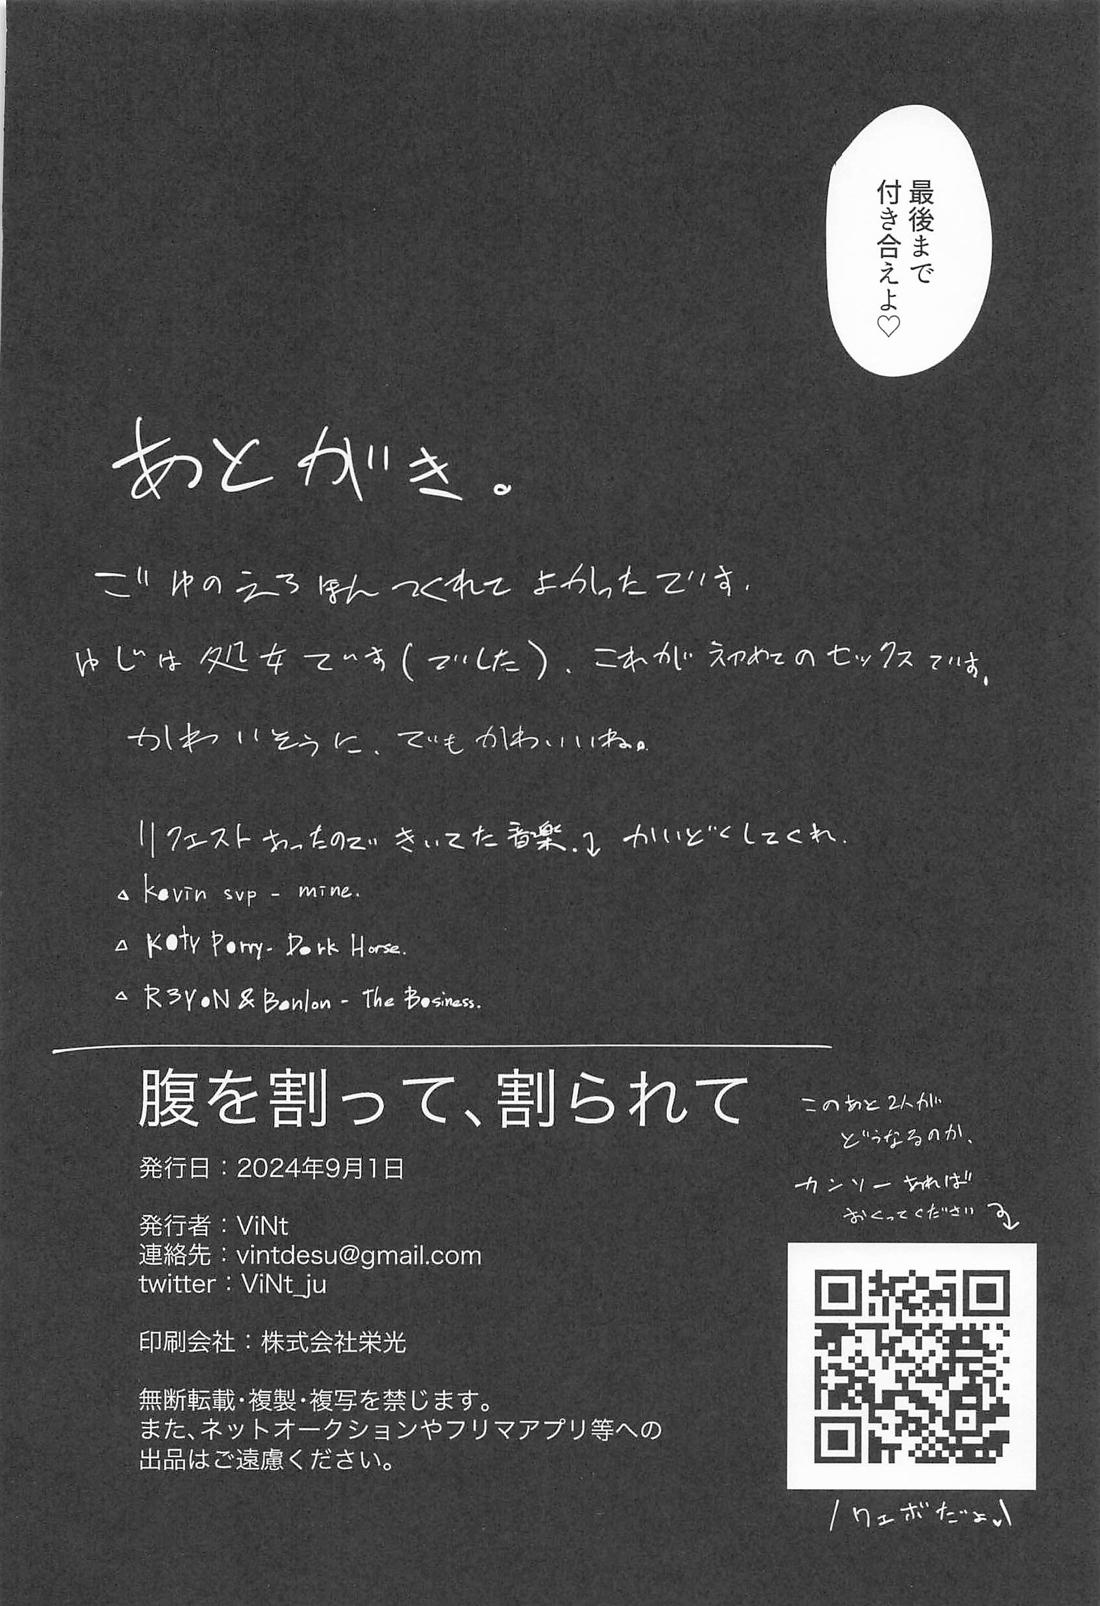 最後まで
付き合えよ♡
あとがき。
ごゆのえろほんつくれてよかったです.
ゆじは処女です(でした).これが初めてのセックスです.
かわいそうに.でもかわいいね。
リクエストあったのできいてた音楽.↓ かいどくしてくれ.
△ kevin svp - mine.
△ Katy Perry- Dark Horse.
△ R3YoN & Bonlon - The Business.
腹を割って、割られて
発行日：2024年9月1日
発行者：ViNt
連絡先：vintdesu@gmail.com
twitter：ViNt_ju
印刷会社：株式会社栄光
無断転載・複製・複写を禁じます。
また、ネットオークションやフリマアプリ等への
出品はご遠慮ください。
このあと2人が
どうなるのか、
カンソーあれば
おくってください
\ウェボだよ♥/